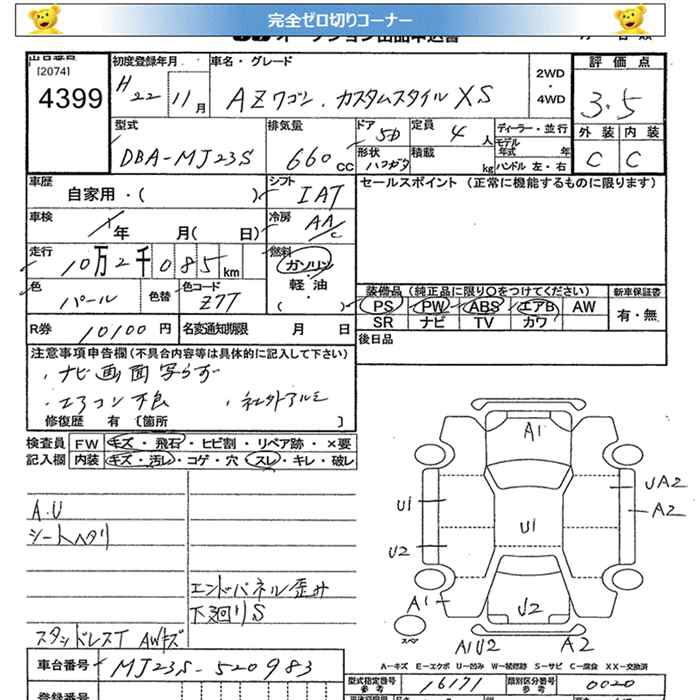 完全ゼロ切りコーナー
[2074]
4399
初度登録年月
H22 11月
車名・グレード
AZワゴン. カスタムスタイル XS
2WD
・
4WD
評価点
3.5
外装 内装
C C
型式
DBA-MJ23S
排気量
660 CC
ドア 5D
定員 4 人
ディーラー・並行
モデル年式 年
形状 ハコガタ
積載 kg
ハンドル 左・右
車歴
自家用・( )
シフト IAT
セールスポイント (正常に機能するものに限ります)
車検
年 月( 日)
冷房 AAC
走行
10万2千085km
燃料
ガソリン
・
軽・油
( )
色 パール
色替
色コード Z7T
装備品 (純正品に限り○をつけてください)
新車保証書
PS PW ABS エアB AW
SR ナビ TV カワ
有・無
R券 10100円
名変通知期限 月 日
後日品
注意事項申告欄(不具合内容等は具体的に記入して下さい)
・ナビ画面写らず
・エアコン不良 ・社外アルミ
修復歴 有 〔箇所 〕
検査員 FW キズ・飛石・ヒビ割・リペア跡・×要
記入欄 内装 キズ・汚レ・コゲ・穴・スレ・キレ・破レ
A.U
シートヘタリ
エンドパネル歪み
下廻りS
スタッドレスT AWキズ
A1
U1
U2
U1
UA2
A2
A1
U2
スペア
A1U2
A2
A-キズ E-エクボ U-凹み W-補修跡 S-サビ C-腐食 XX-交換済
車台番号 MJ23S-520983
型式指定番号 参考 16171
類別区分番号 参考 0020
登録番号